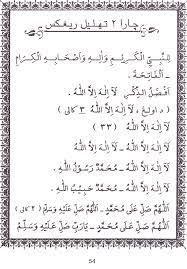 چارا ٢ تهليل ريڠكس
لِلنَّبِيِّ الْكَرِيْمِ وَآلِهِ وَاَصْحَابِهِ الْكِرَامِ
ـ اَلْفَاتِحَةْ .
اَفْضَلُ الذِّكْرِ ـ لَآ اِلٰهَ اِلَّا اللهُ
( د اولڠ ، لَآ اِلٰهَ اِلَّا اللهُ ٣ كالى )
لَآ اِلٰهَ اِلَّا اللهُ (٣٣)
لَآ اِلٰهَ اِلَّا اللهُ ـ لَآ اِلٰهَ اِلَّا اللهُ
لَآ اِلٰهَ اِلَّا اللهُ ـ مُحَمَّدٌ رَسُوْلُ اللهِ
لَآ اِلٰهَ اِلَّا اللهُ ـ مُحَمَّدٌ حَبِيْبُ اللهِ
اَللّٰهُمَّ صَلِّ عَلٰى مُحَمَّدٍ ـ اَللّٰهُمَّ صَلِّ عَلَيْهِ وَسَلِّمْ (٢ كالى)
اَللّٰهُمَّ صَلِّ عَلٰى مُحَمَّدٍ ـ يَارَبِّ صَلِّ عَلَيْهِ وَسَلِّمْ
54